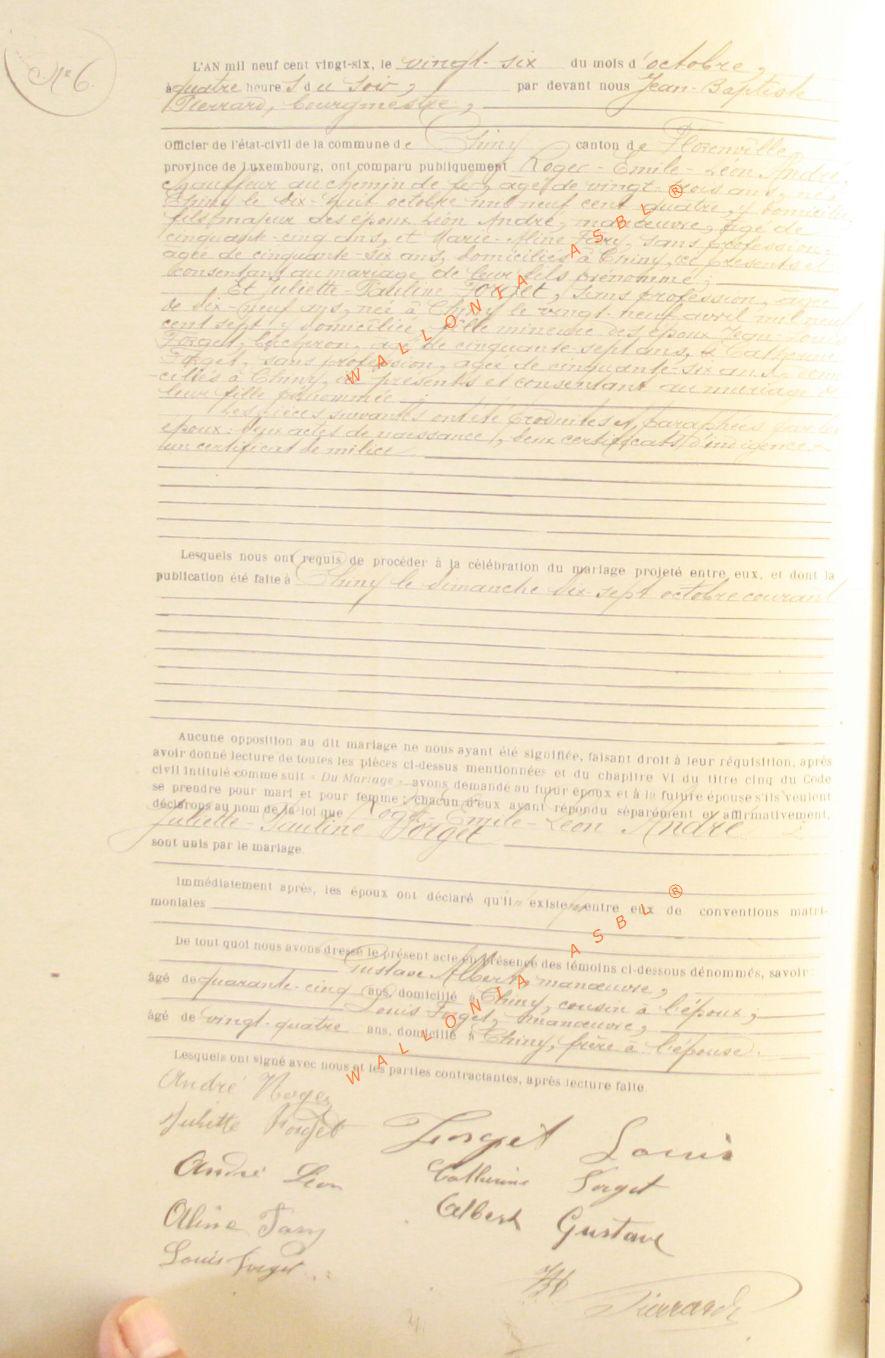 N° 6.
L'AN mil neuf cent vingt-six, le vingt-six du mois d'octobre,
à quatre heures du soir, par devant nous Jean-Baptiste
Pierrard, bourgmestre,
Officier de l'état-civil de la commune de Chiny canton de Florenville
province de Luxembourg, ont comparu publiquement Roger-Emile-Léon André,
chauffeur au chemin de fer, âgé de vingt-trois ans, né à
Chiny le dix-huit octobre mil neuf cent quatre, y domicilié
fils majeur des époux Léon André, manœuvre, âgé de
cinquante-cinq ans, et Marie-Aline, sans profession,
âgée de cinquante-six ans, domiciliés à Chiny, ici présents et
consentant au mariage de leur fils prénommé,
Et Juliette-Pauline Forget, sans profession, âgée
de dix-neuf ans, née à Chiny le vingt-neuf avril mil neuf
cent sept, y domiciliée, fille mineure des époux
Forget, bûcheron, âgé de cinquante-sept ans, et
Forget, sans profession, âgée de cinquante-six ans, domi
ciliés à Chiny, ici présents et consentant au mariage de
leur fille prénommée
Les pièces suivantes ont été produites et paraphées par les
époux: deux actes de naissance, deux certificats d'indigence
un certificat de milice
Lesquels nous ont requis de procéder à la célébration du mariage projeté entre eux, et dont la
publication été faite à Chiny le dimanche dix-sept octobre courant
Aucune opposition au dit mariage ne nous ayant été signifiée, faisant droit à leur réquisition, après
avoir donné lecture de toutes les pièces ci-dessus mentionnées et du chapitre VI du titre cinq du Code
civil intitulé comme suit « Du Mariage » avons demandé au futur époux et à la future épouse s'ils veulent
se prendre pour mari et pour femme; chacun d'eux ayant répondu séparément et affirmativement,
déclarons au nom de la loi que Roger-Emile-Léon André &
Juliette-Pauline Forget
sont unis par le mariage.
Immédiatement après, les époux ont déclaré qu'il n'existe pas entre eux de conventions matri-
moniales
De tout quoi nous avons dressé le présent acte en présence des témoins ci-dessous dénommés, savoir:
Gustave Albert, manœuvre,
âgé de quarante-cinq ans, domicilié à Chiny, cousin à l'époux;
Louis Forget, manœuvre,
âgé de vingt-quatre ans, domicilié à Chiny, frère à l'épouse.
Lesquels ont signé avec nous et les parties contractantes, après lecture faite.
André Roger
Juliette Forget Forget Louis
André Léon Catherine Forget
Aline Albert Gustave
Louis Forget
Pierrard
WALLONIA ASBL ®
WALLONIA ASBL ®